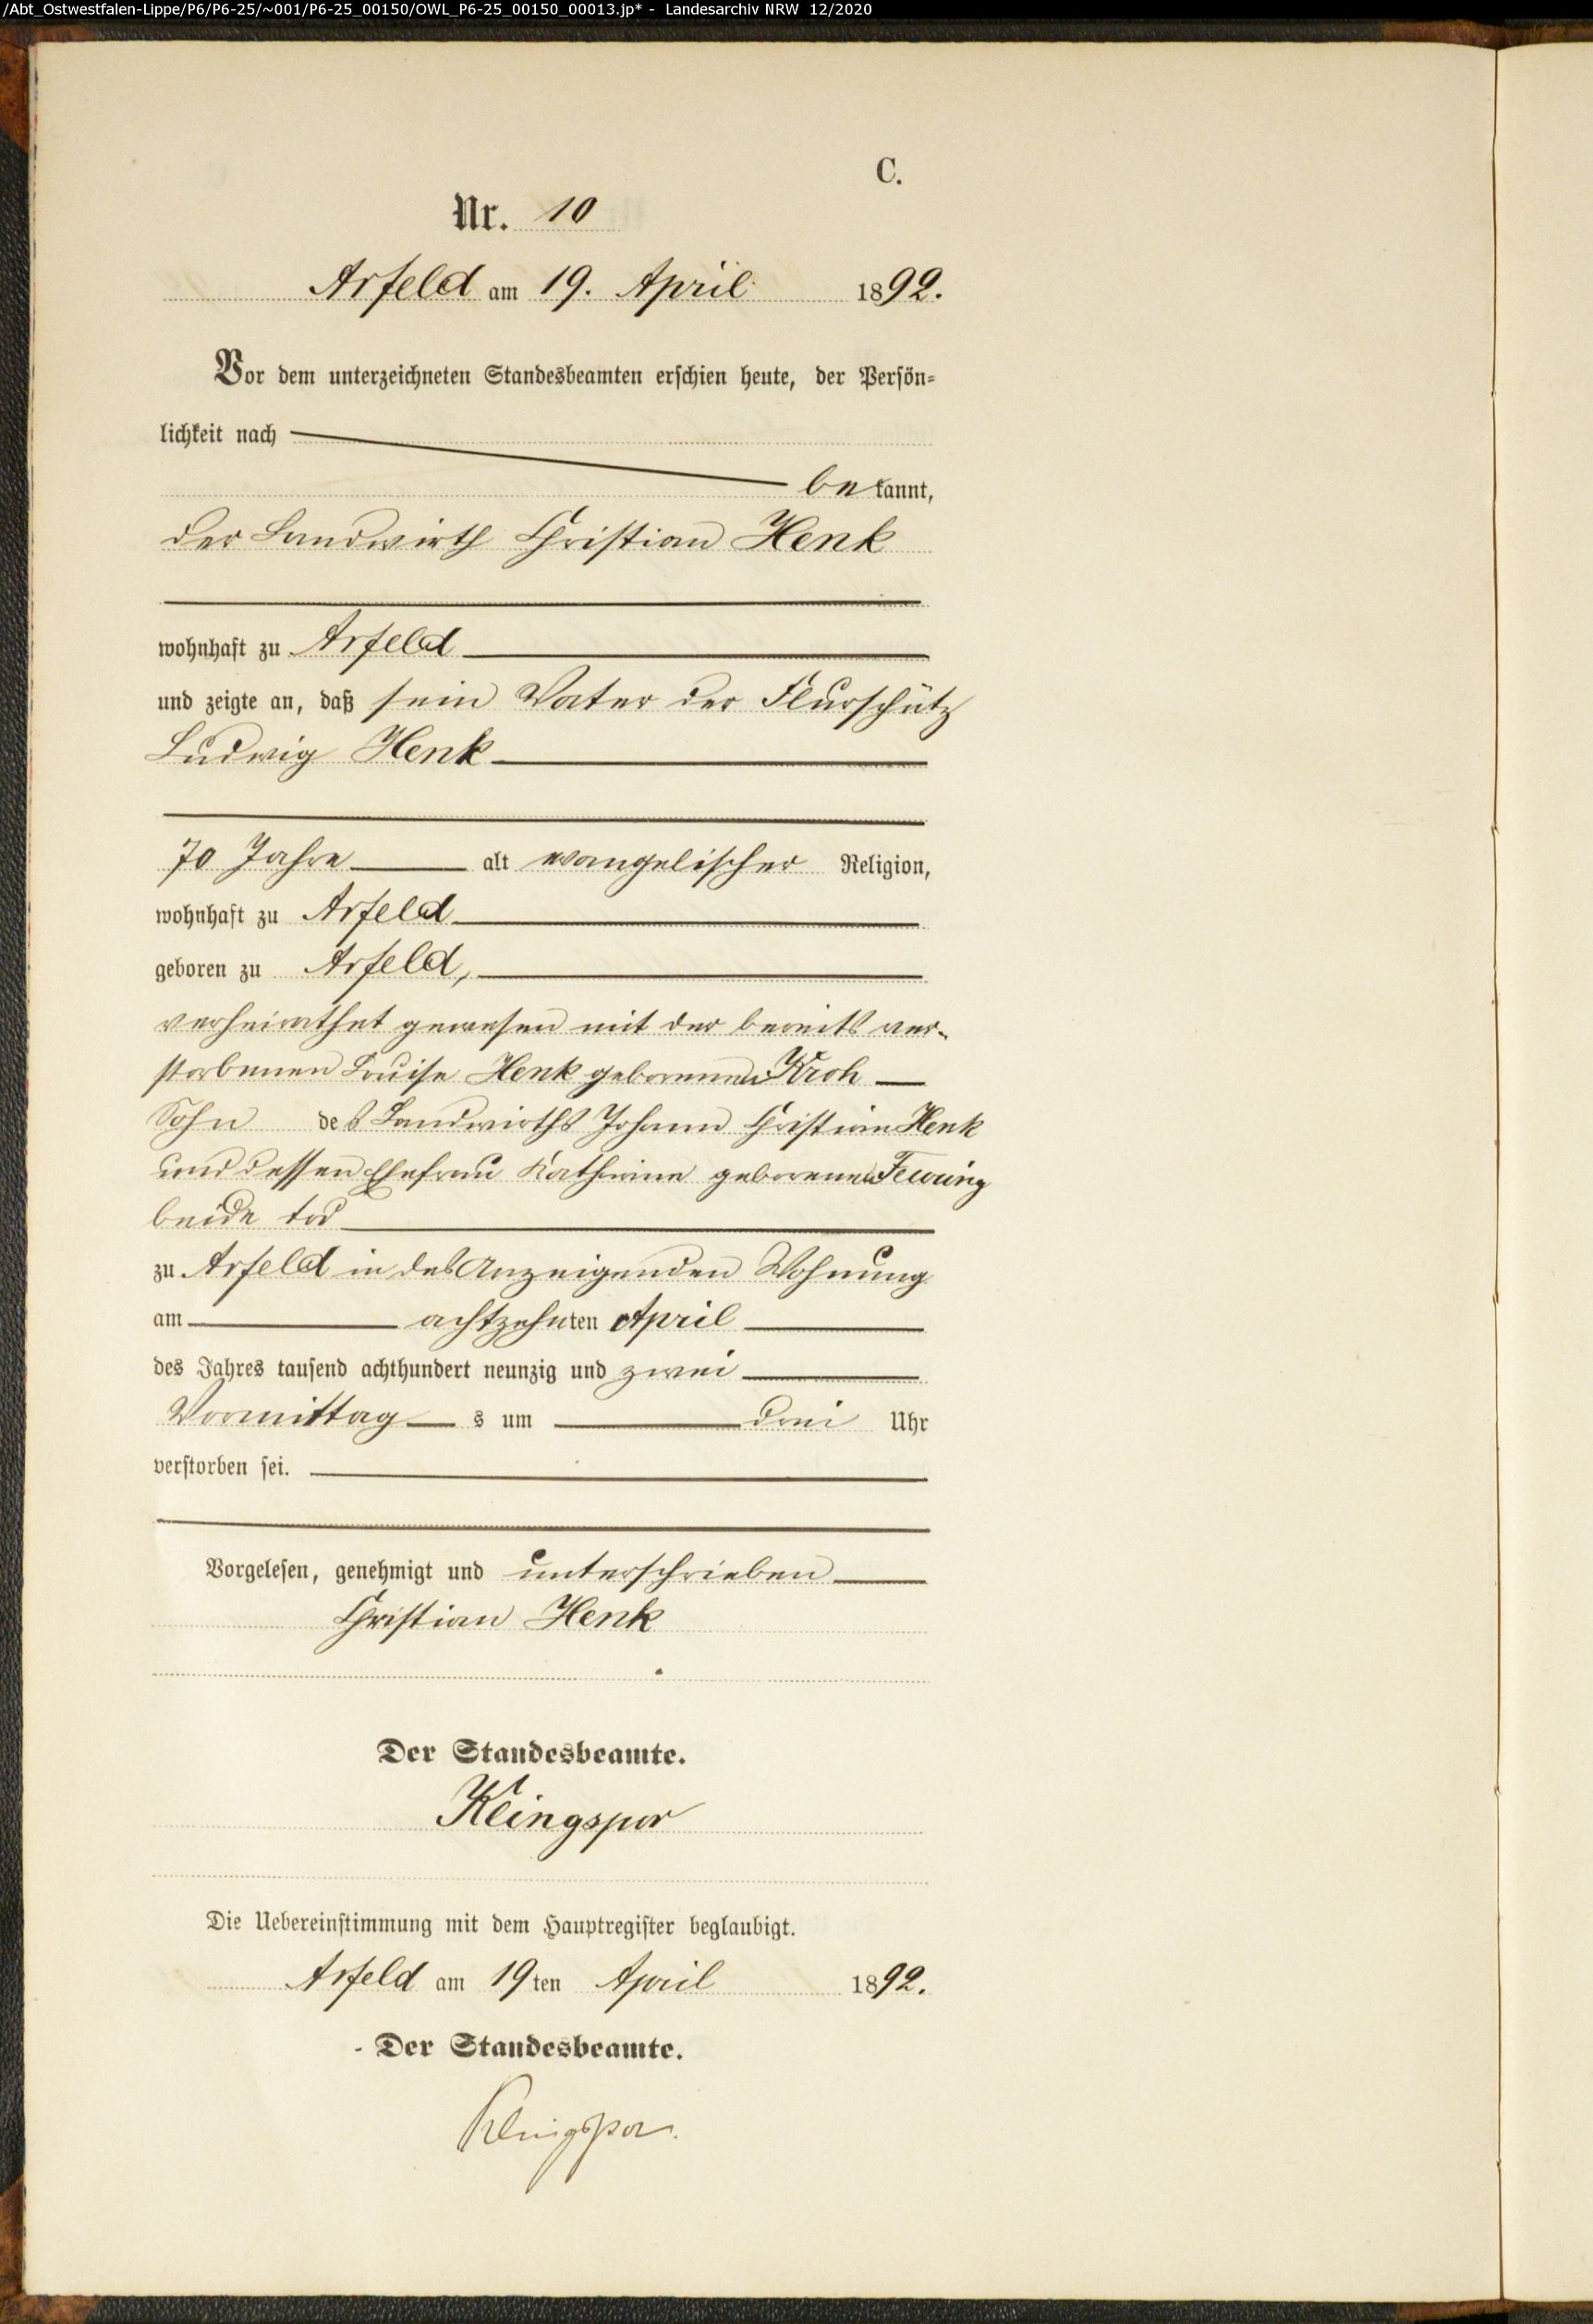 /Abt_Ostwestfalen-Lippe/P6/P6-25/~001/P6-25_00150/OWL_P6-25_00150_00013.jp* - Landesarchiv NRW 12/2020
C.
Nr. 10
Arfeld am 19. April 1892.
Vor dem unterzeichneten Standesbeamten erschien heute, der Persön-
lichkeit nach
bekannt,
der Landwirth Christian Henk
wohnhaft zu Arfeld
und zeigte an, daß sein Vater der Flurschütz
Ludwig Henk
70 Jahre alt evangelischer Religion,
wohnhaft zu Arfeld
geboren zu Arfeld,
verheirathet gewesen mit der bereits ver-
storbenen Louise Henk geborenen Kroh
Sohn des Landwirths Johann Christian Henk
und dessen Ehefrau Katharine geborenen
beide tod
zu Arfeld in des Anzeigenden Wohnung
am achtzehnten April
des Jahres tausend achthundert neunzig und zwei
Vormittags um drei Uhr
verstorben sei.
Vorgelesen, genehmigt und unterschrieben
Christian Henk
Der Standesbeamte.
Klingspor
Die Uebereinstimmung mit dem Hauptregister beglaubigt.
Arfeld am 19ten April 1892.
- Der Standesbeamte.
Klingspor.